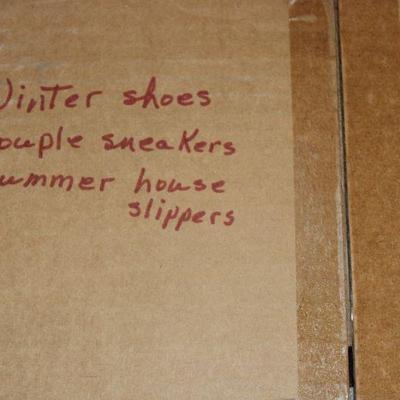 Winter shoes
ouple sneakers
ummer house
slippers